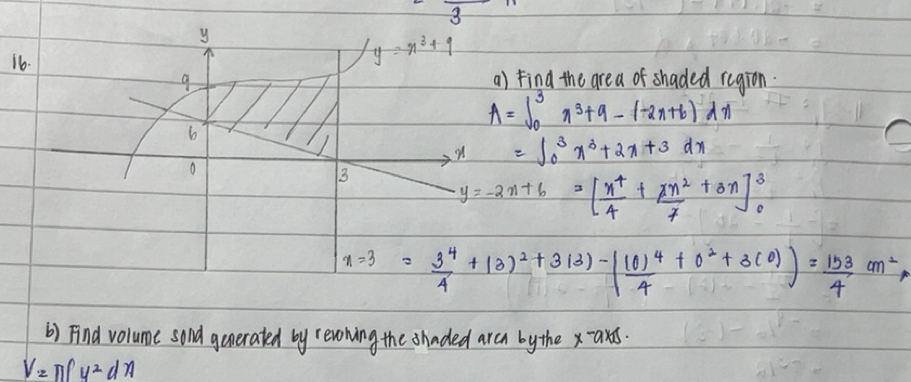 3
16.
y
y = x³ + 9
9
6
0
x
3
y = -2x + 6
x = 3
a) Find the area of shaded region.
A = ∫₀³ x³ + 9 - (-2x + 6) dx
= ∫₀³ x³ + 2x + 3 dx
= [x⁴/4 + 2x²/2 + 3x]₀³
= 3⁴/4 + (3)² + 3(3) - ((0)⁴/4 + 0² + 3(0)) = 153/4 cm²
b) Find volume solid generated by revolving the shaded area by the x-axis.
V = π∫ y² dx